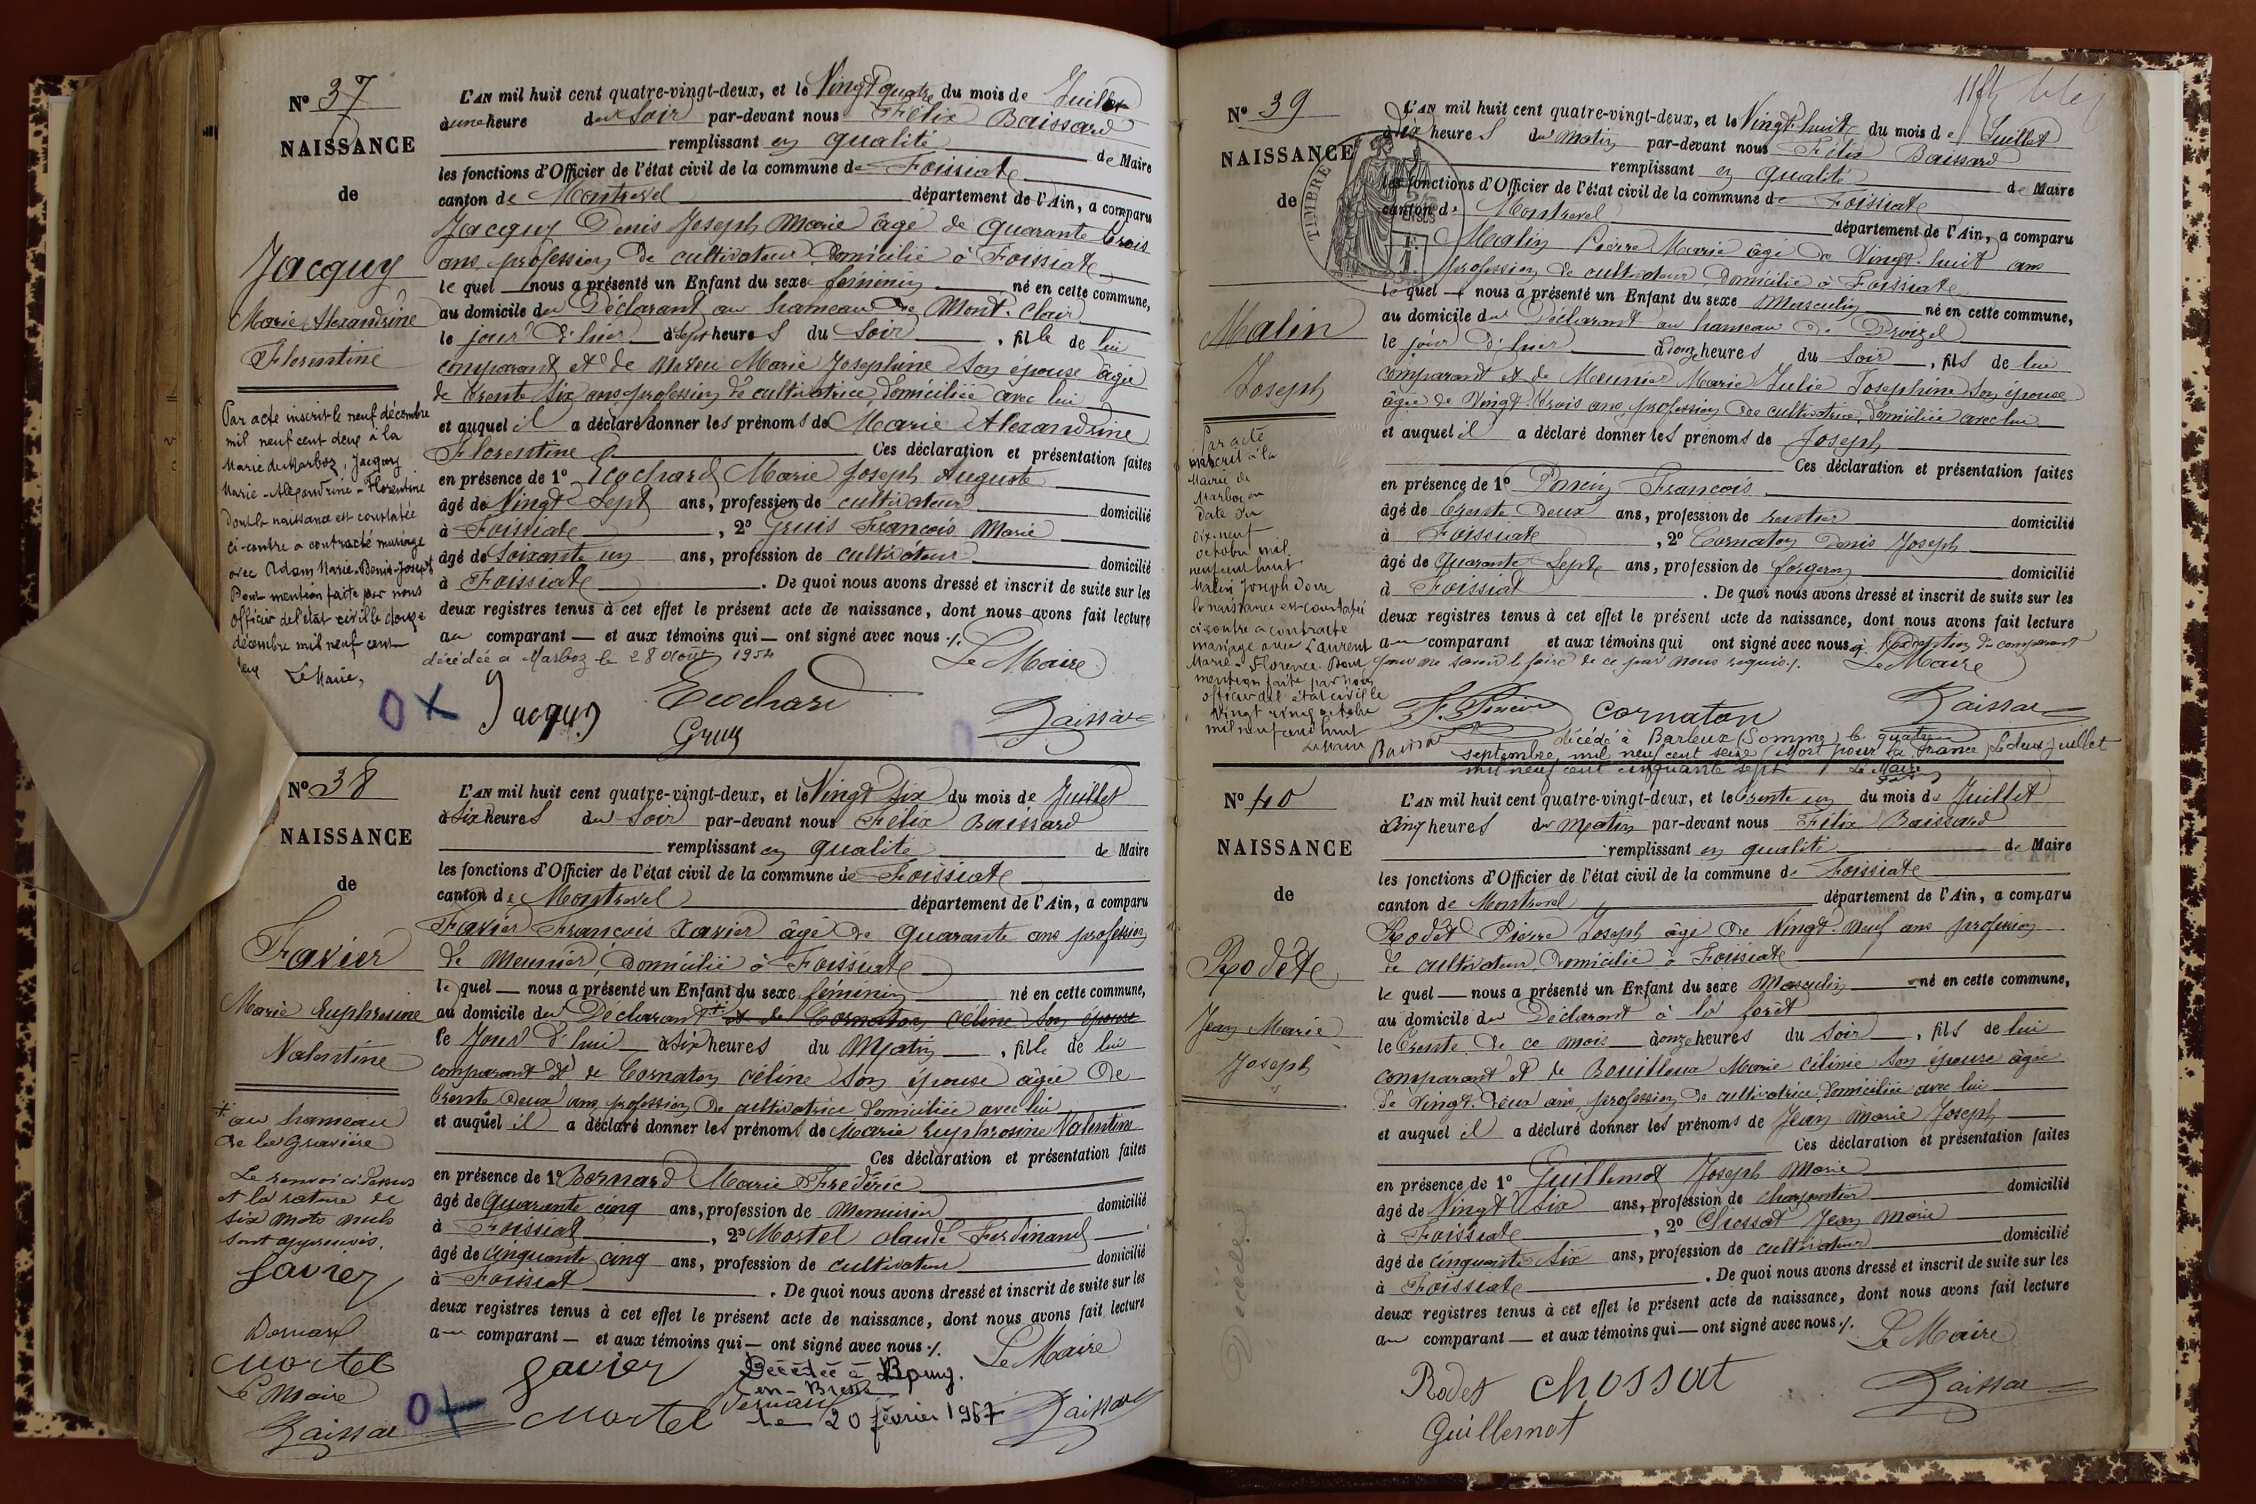 N° 37
NAISSANCE
de
Jacquy
Marie Alexandrine
Florentine
Par acte inscrit le neuf décembre
mil neuf cent deux à la
Mairie de Marboz, Jacquy
Marie-Alexandrine-Florentine
dont la naissance est constatée
ci-contre a contracté mariage
avec Adam Marie-Denis-Joseph
Pour mention faite par nous
officier de l'état civil le douze
décembre mil neuf cent
deux Le Maire,
L'AN mil huit cent quatre-vingt-deux, et le Vingt quatre du mois de Juillet
à une heure du Soir par-devant nous Félix Baissard
remplissant en qualité de Maire
les fonctions d'Officier de l'état civil de la commune de Foissiate
canton de Montrevel département de l'Ain, a comparu
Jacquy Denis Joseph Marie âgé de quarante trois
ans, profession de cultivateur domicilié à Foissiate
le quel nous a présenté un Enfant du sexe féminin né en cette commune,
au domicile du Déclarant au hameau de Mont-Clair
le jour d'hier à Sept heures du Soir, fille de lui
comparant et de Marie Josephine son épouse âgée
de trente six ans profession de cultivatrice domiciliée avec lui
et auquel il a déclaré donner les prénoms de Marie Alexandrine
Florentine Ces déclaration et présentation faites
en présence de 1° Ecochard Marie Joseph Auguste
âgé de Vingt Sept ans, profession de cultivateur domicilié
à Foissiate, 2° Gruis François Marie
âgé de Soixante un ans, profession de cultivateur domicilié
à Foissiate. De quoi nous avons dressé et inscrit de suite sur les
deux registres tenus à cet effet le présent acte de naissance, dont nous avons fait lecture
au comparant — et aux témoins qui — ont signé avec nous ./.
décédée à Marboz le 28 août 1954
Le Maire
O X Jacquy Ecochard
Gruis
Baissard
N° 38
NAISSANCE
de
Favier
Marie Euphrosine
Valentine
+ au hameau
de la Gravière
Le renvoi ci dessus
et la rature de
six mots nuls
sont approuvés.
Favier
Bernard
Mortel
Le Maire
Baissard
L'AN mil huit cent quatre-vingt-deux, et le Vingt six du mois de Juillet
à six heures du Soir par-devant nous Félix Baissard
remplissant en qualité de Maire
les fonctions d'Officier de l'état civil de la commune de Foissiate
canton de Montrevel département de l'Ain, a comparu
Favier François Xavier âgé de quarante ans profession
de meunier, domicilié à Foissiate
le quel — nous a présenté un Enfant du sexe féminin né en cette commune,
au domicile du Déclarant + et de Cornaton céline son épouse
le Jour d'hui à Six heures du Matin, fille de lui
comparant et de Cornaton céline son épouse âgée de
trente deux ans profession de cultivatrice domiciliée avec lui
et auquel il a déclaré donner les prénoms de Marie Euphrosine Valentine
Ces déclaration et présentation faites
en présence de 1° Bernard Marie Frédéric
âgé de Quarante cinq ans, profession de Menuisier domicilié
à Foissiat, 2° Mortel claude Ferdinand
âgé de Cinquante cinq ans, profession de cultivateur domicilié
à Foissiat. De quoi nous avons dressé et inscrit de suite sur les
deux registres tenus à cet effet le présent acte de naissance, dont nous avons fait lecture
au comparant — et aux témoins qui — ont signé avec nous ./.
Favier Décédée à Bourg. Le Maire
en-Bresse
Bernard
O X Mortel le 20 février 1967 Baissard
N° 39
NAISSANCE
de
TIMBRE
Malin
Joseph
Par acte
inscrit à la
Mairie de
Marboz en
date du
dix-neuf
octobre mil
neuf cent huit
Malin Joseph dont
la naissance est constatée
ci-contre a contracté
mariage avec Laurent
Marie-Florence. Pour
mention faite par nous
officier de l'état civil le
vingt cinq octobre
mil neuf cent huit
Le Maire Baissard
L'AN mil huit cent quatre-vingt-deux, et le Vingt-huit du mois de Juillet
à dix heures du Matin par-devant nous Félix Baissard
remplissant en qualité de Maire
les fonctions d'Officier de l'état civil de la commune de Foissiate
canton de Montrevel département de l'Ain, a comparu
Malin Pierre Marie âgé de Vingt-huit ans
profession de cultivateur domicilié à Foissiate
le quel — nous a présenté un Enfant du sexe Masculin né en cette commune,
au domicile du Déclarant au hameau de
le jour d'hier à onze heures du Soir, fils de lui
comparant et de Meunier Marie Julie Josephine son épouse
âgée de Vingt-trois ans, profession de cultivatrice domiciliée avec lui
et auquel il a déclaré donner les prénoms de Joseph
Ces déclaration et présentation faites
en présence de 1° Poncin François
âgé de trente deux ans, profession de rentier domicilié
à Foissiate, 2° Cornaton Denis Joseph
âgé de Quarante Sept ans, profession de forgeron domicilié
à Foissiat. De quoi nous avons dressé et inscrit de suite sur les
deux registres tenus à cet effet le présent acte de naissance, dont nous avons fait lecture
au comparant et aux témoins qui ont signé avec nous à l'exception du comparant
pour ne savoir le faire de ce par nous requis ./. Le Maire
F. Poncin cornaton Baissard
décédé à Barleux (Somme) le quatre
septembre mil neuf cent seize (Mort pour la France) Le deux juillet
mil neuf cent cinquante sept Le Maire
N° 40
NAISSANCE
de
Rodete
Jean Marie
Joseph
Décédé
L'AN mil huit cent quatre-vingt-deux, et le trente un du mois de Juillet
à cinq heures du Matin par-devant nous Félix Baissard
remplissant en qualité de Maire
les fonctions d'Officier de l'état civil de la commune de Foissiate
canton de Montrevel département de l'Ain, a comparu
Rodet Pierre Joseph âgé de Vingt-neuf ans profession
de cultivateur domicilié à Foissiate
le quel — nous a présenté un Enfant du sexe Masculin né en cette commune,
au domicile du Déclarant à la forêt
le trente de ce mois à onze heures du Soir, fils de lui
comparant et de Bouilloux Marie célinie son épouse âgée
de vingt-deux ans, profession de cultivatrice, domiciliée avec lui
et auquel il a déclaré donner les prénoms de Jean Marie Joseph
Ces déclaration et présentation faites
en présence de 1° Guillemot Joseph Marie
âgé de Vingt Six ans, profession de charpentier domicilié
à Foissiate, 2° Chossat Jean Marie
âgé de cinquante six ans, profession de cultivateur domicilié
à Foissiate. De quoi nous avons dressé et inscrit de suite sur les
deux registres tenus à cet effet le présent acte de naissance, dont nous avons fait lecture
au comparant — et aux témoins qui — ont signé avec nous ./. Le Maire
Rodet chossat Baissard
Guillemot